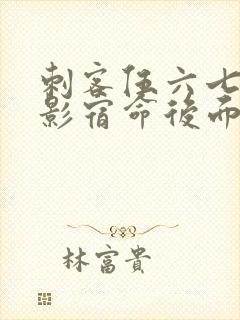 刺客伍六七
影宿命後而
林富貴